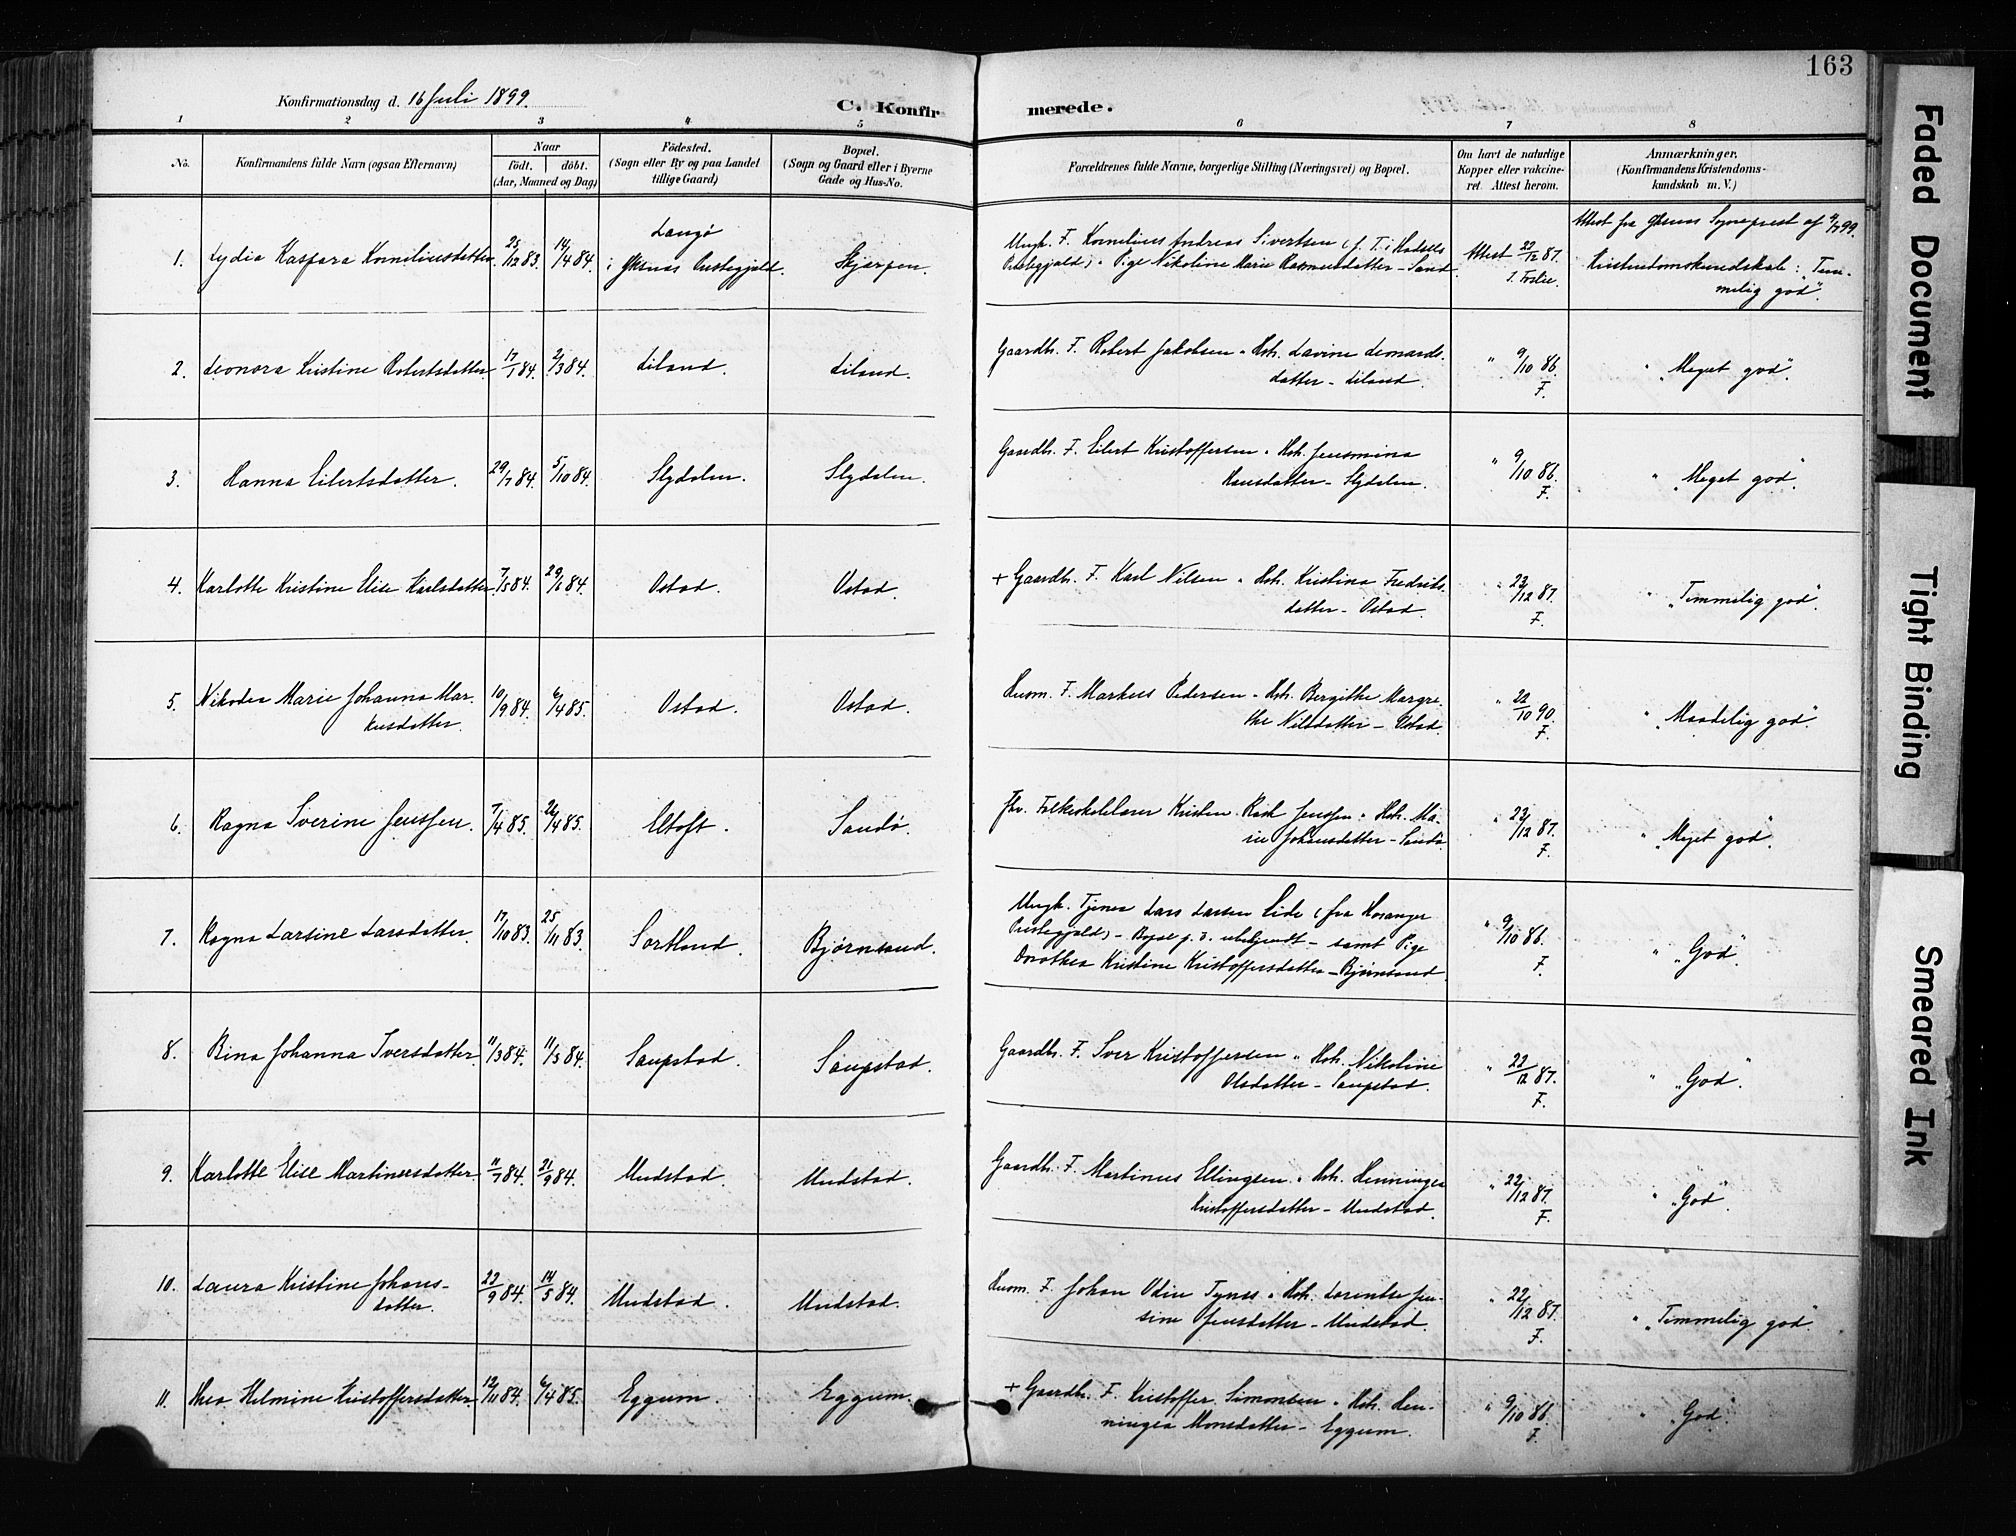 163
Konfirmationsdag d. 16 Juli 1899.
C. Konfirmerede.
1 2 3 4 5 6 7 8
No.
Konfirmandens fulde Navn (ogsaa Efternavn)
Naar
født. døbt.
(Aar, Maaned og Dag)
Födested.
(Sogn eller By og paa Landet
tillige Gaard)
Bopæl.
(Sogn og Gaard eller i Byerne
Gade og Hus-No.
Forældrenes fulde Navne, borgerlige Stilling (Næringsvei) og Bopæl.
Om havt de naturlige
Kopper eller vakcine-
ret. Attest herom.
Anmærkninger.
(Konfirmandens Kristendoms-
kundskab m. V.)
1. Lydia Kaspara Korneliusdatter 25/12 83. 14/4 84. Langø
i Øksnæs Præstegjeld. Skjærpen.
Ungk. F. Kornelius Andreas Sivertsen (f. T. i Hadsels
Præstegjeld) " Pige Nikoline Marie Rasmusdatter - Sand
Attest 22/12 87.
Attest fra Øksnes Sogneprest af 4/7 99.
Kristendomskundskab: "Tem-
melig god".
2. Leonora Kristine Robertsdatter 17/1 84. 2/3 84. Liland. Liland.
Gaardb. F. Robert Jakobsen " Hst. Lavine Leonards-
datter - Liland.
" 9/10 86.
F.
" "Meget god".
3. Hanna Eilertsdatter. 29/7 84. 5/10 84. Slydalen. Slydalen.
Gaardb. F. Eilert Kristoffersen " Hst. Jensmina
Hansdatter - Slydalen.
" 9/10 86.
F.
" "Meget god".
4. Karlotte Kristine Elise Karlsdatter 7/5 84. 29/6 84. Ostad. Ostad.
+ Gaardb. F. Karl Nilsen " Hst. Kristina Fredriks-
datter - Ostad.
" 22/12 87.
F.
" "Temmelig god".
5. Nikodea Marie Johanna Mar-
kusdatter. 10/9 84. 6/4 85. Ostad. Ostad.
Husm. F. Markus Pedersen " Hst. Bergithe Margre-
the Nilsdatter - Ostad.
" 22/10 90.
F.
" "Maadelig god".
6. Ragna Sverine Jenssen. 7/4 85. 26/4 85. Eltoft. Sandø.
Fhv. Folkeskolelærer Kristen Rask Jenssen " Hst. Ma-
rie Johansdatter - Sandø
" 22/12 87.
F.
" "Meget god".
7. Ragna Larsine Larsdatter. 17/10 83. 25/11 83. Sortland. Bjørnsund.
Ungk. Tjener Lars Larsen Eide (fra Hosanger
Præstegjeld) - Bopæl p. t. ubekjendt - samt Pige
Dorothea Kristine Kristoffersdatter - Bjørnsund.
" 9/10 86.
F.
" "God".
8. Bina Johanna Iversdatter. 11/3 84. 11/5 84. Saupstad. Saupstad.
Gaardb. F. Iver Kristoffersen " Hst. Nikoline
Olsdatter - Saupstad.
" 22/12 87.
F.
" "God".
9. Karlotte Elise Martinusdatter 11/7 84. 21/9 84. Unstad. Unstad.
Gaardb. F. Martinus Ellingsen " Hst. Henningea
Kristoffersdatter - Undstad.
" 22/12 87.
F.
" "God".
10. Laura Kristine Johans-
datter. 23/9 84. 14/5 84. Undstad. Undstad.
Husm. F. Johan Odin Tynes " Hst. Lorentse Jen-
sine Jensdatter - Undstad.
" 22/12 87.
F.
" "Temmelig god".
11. Thea Helmine Kristoffersdatter 12/11 84. 6/4 85. Eggum. Eggum.
+ Gaardb. F. Kristoffer Simonsen " Hst. Hen-
ningea Monsdatter - Eggum.
" 9/10 86.
F.
" "God".
Faded Document
Tight Binding
Smeared Ink